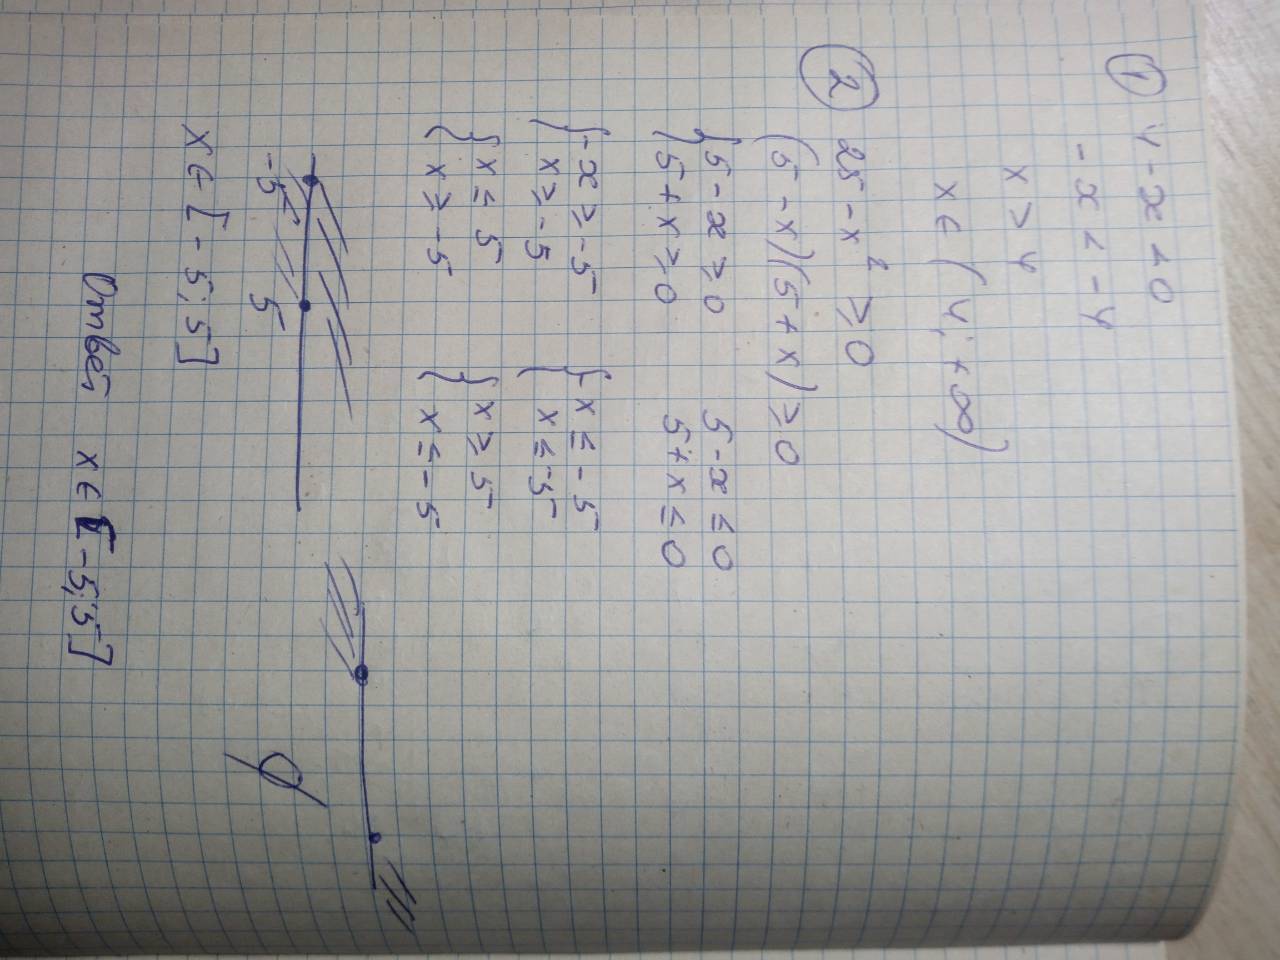 ① 4 - x < 0
- x < - 4
x > 4
x ∈ ( 4; + ∞)
② 25 - x² ≥ 0
(5 - x)(5 + x) ≥ 0
{ 5 - x ≥ 0   5 - x ≤ 0
{ 5 + x ≥ 0   5 + x ≤ 0
{ - x ≥ - 5   { - x ≤ - 5
{ x ≥ - 5   { x ≤ - 5
{ x ≤ 5   { x ≥ 5
{ x ≥ - 5   { x ≤ - 5
-5   5   ∅
x ∈ [ - 5; 5 ]
Ответ x ∈ [ - 5; 5 ]